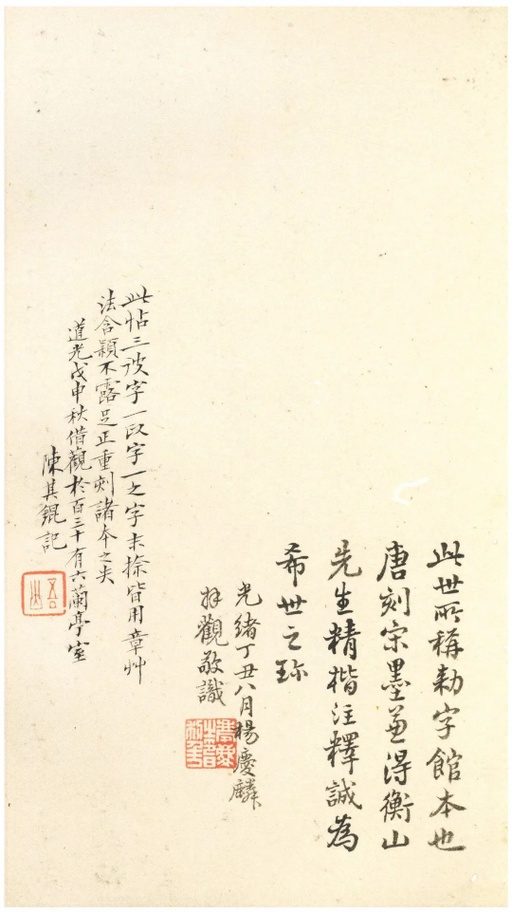 此世所稱勑字館本也
唐刻宋墨兼得衡山
先生精楷注釋誠為
希世之珎
光緒丁丑八月楊慶麟
拜觀敬識
此帖三波字一以字一之字末捺皆用章艸
法含穎不露足正重刻諸本之失
道光戊申秋借觀於百三十有六蘭亭室
陳其錕記